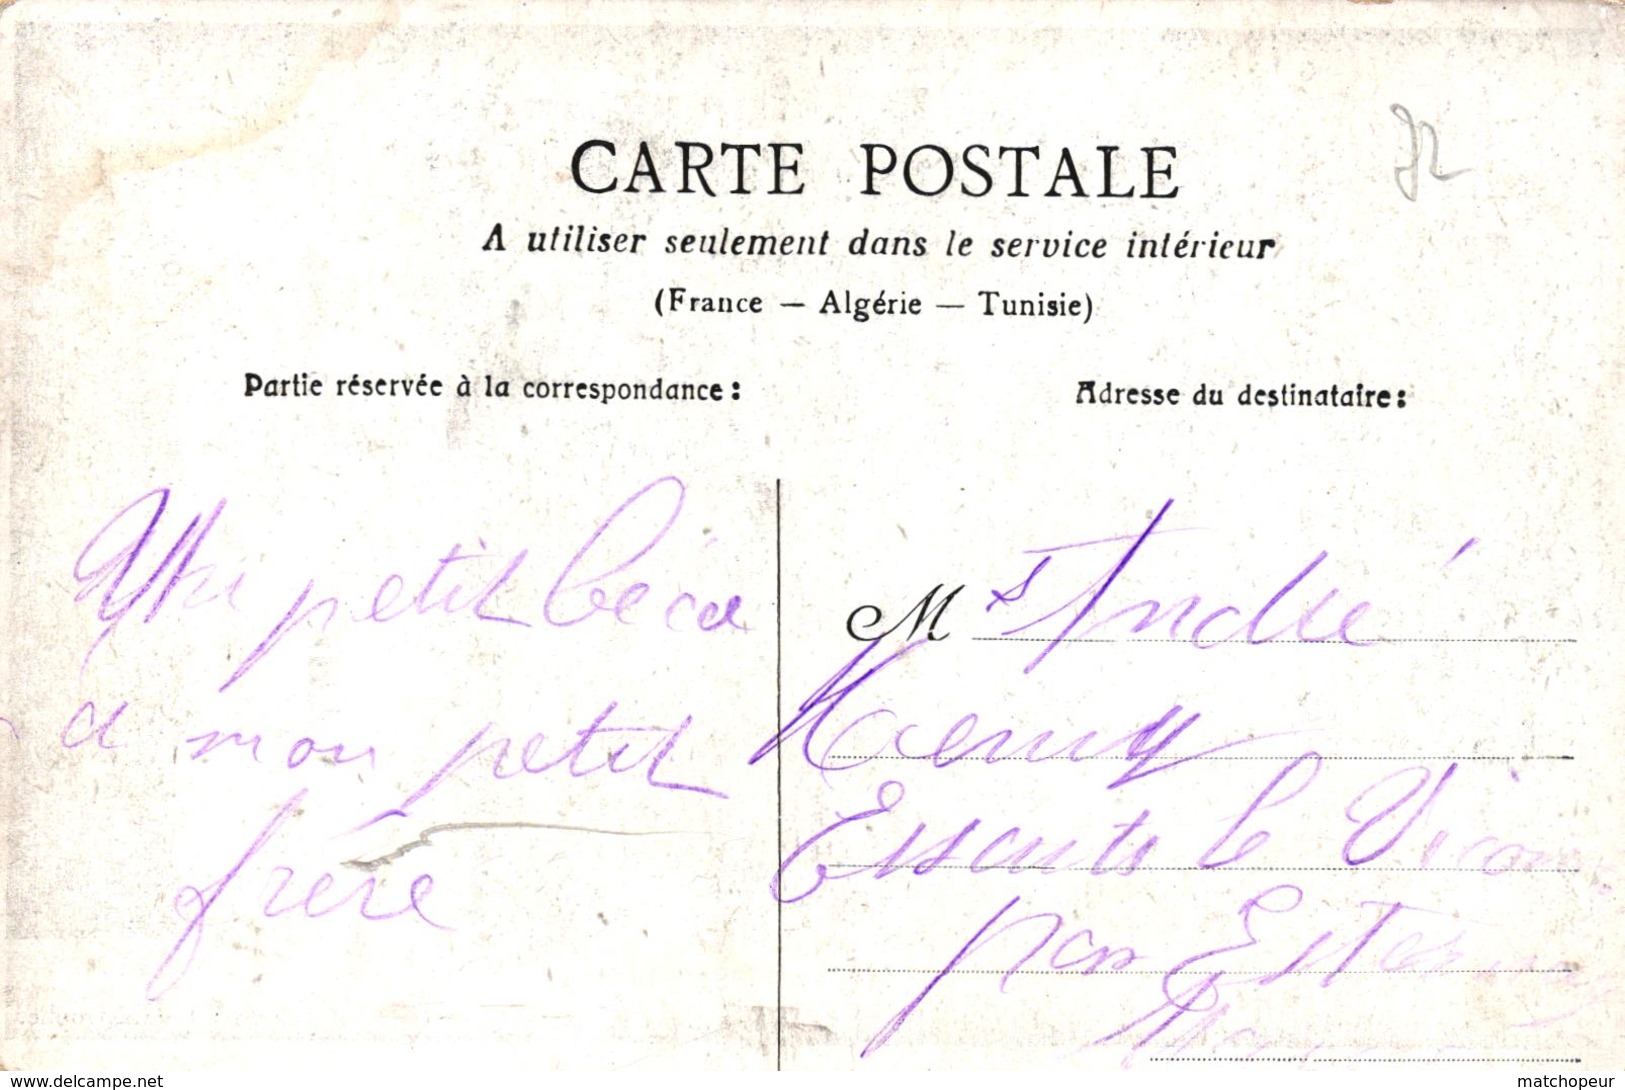 72
CARTE POSTALE
A utiliser seulement dans le service intérieur
(France — Algérie — Tunisie)
Partie réservée à la correspondance :
Adresse du destinataire :
petit
a mon petit
frère
M r André
Essarts le Vicom
par Esternay
www.delcampe.net
matchopeur